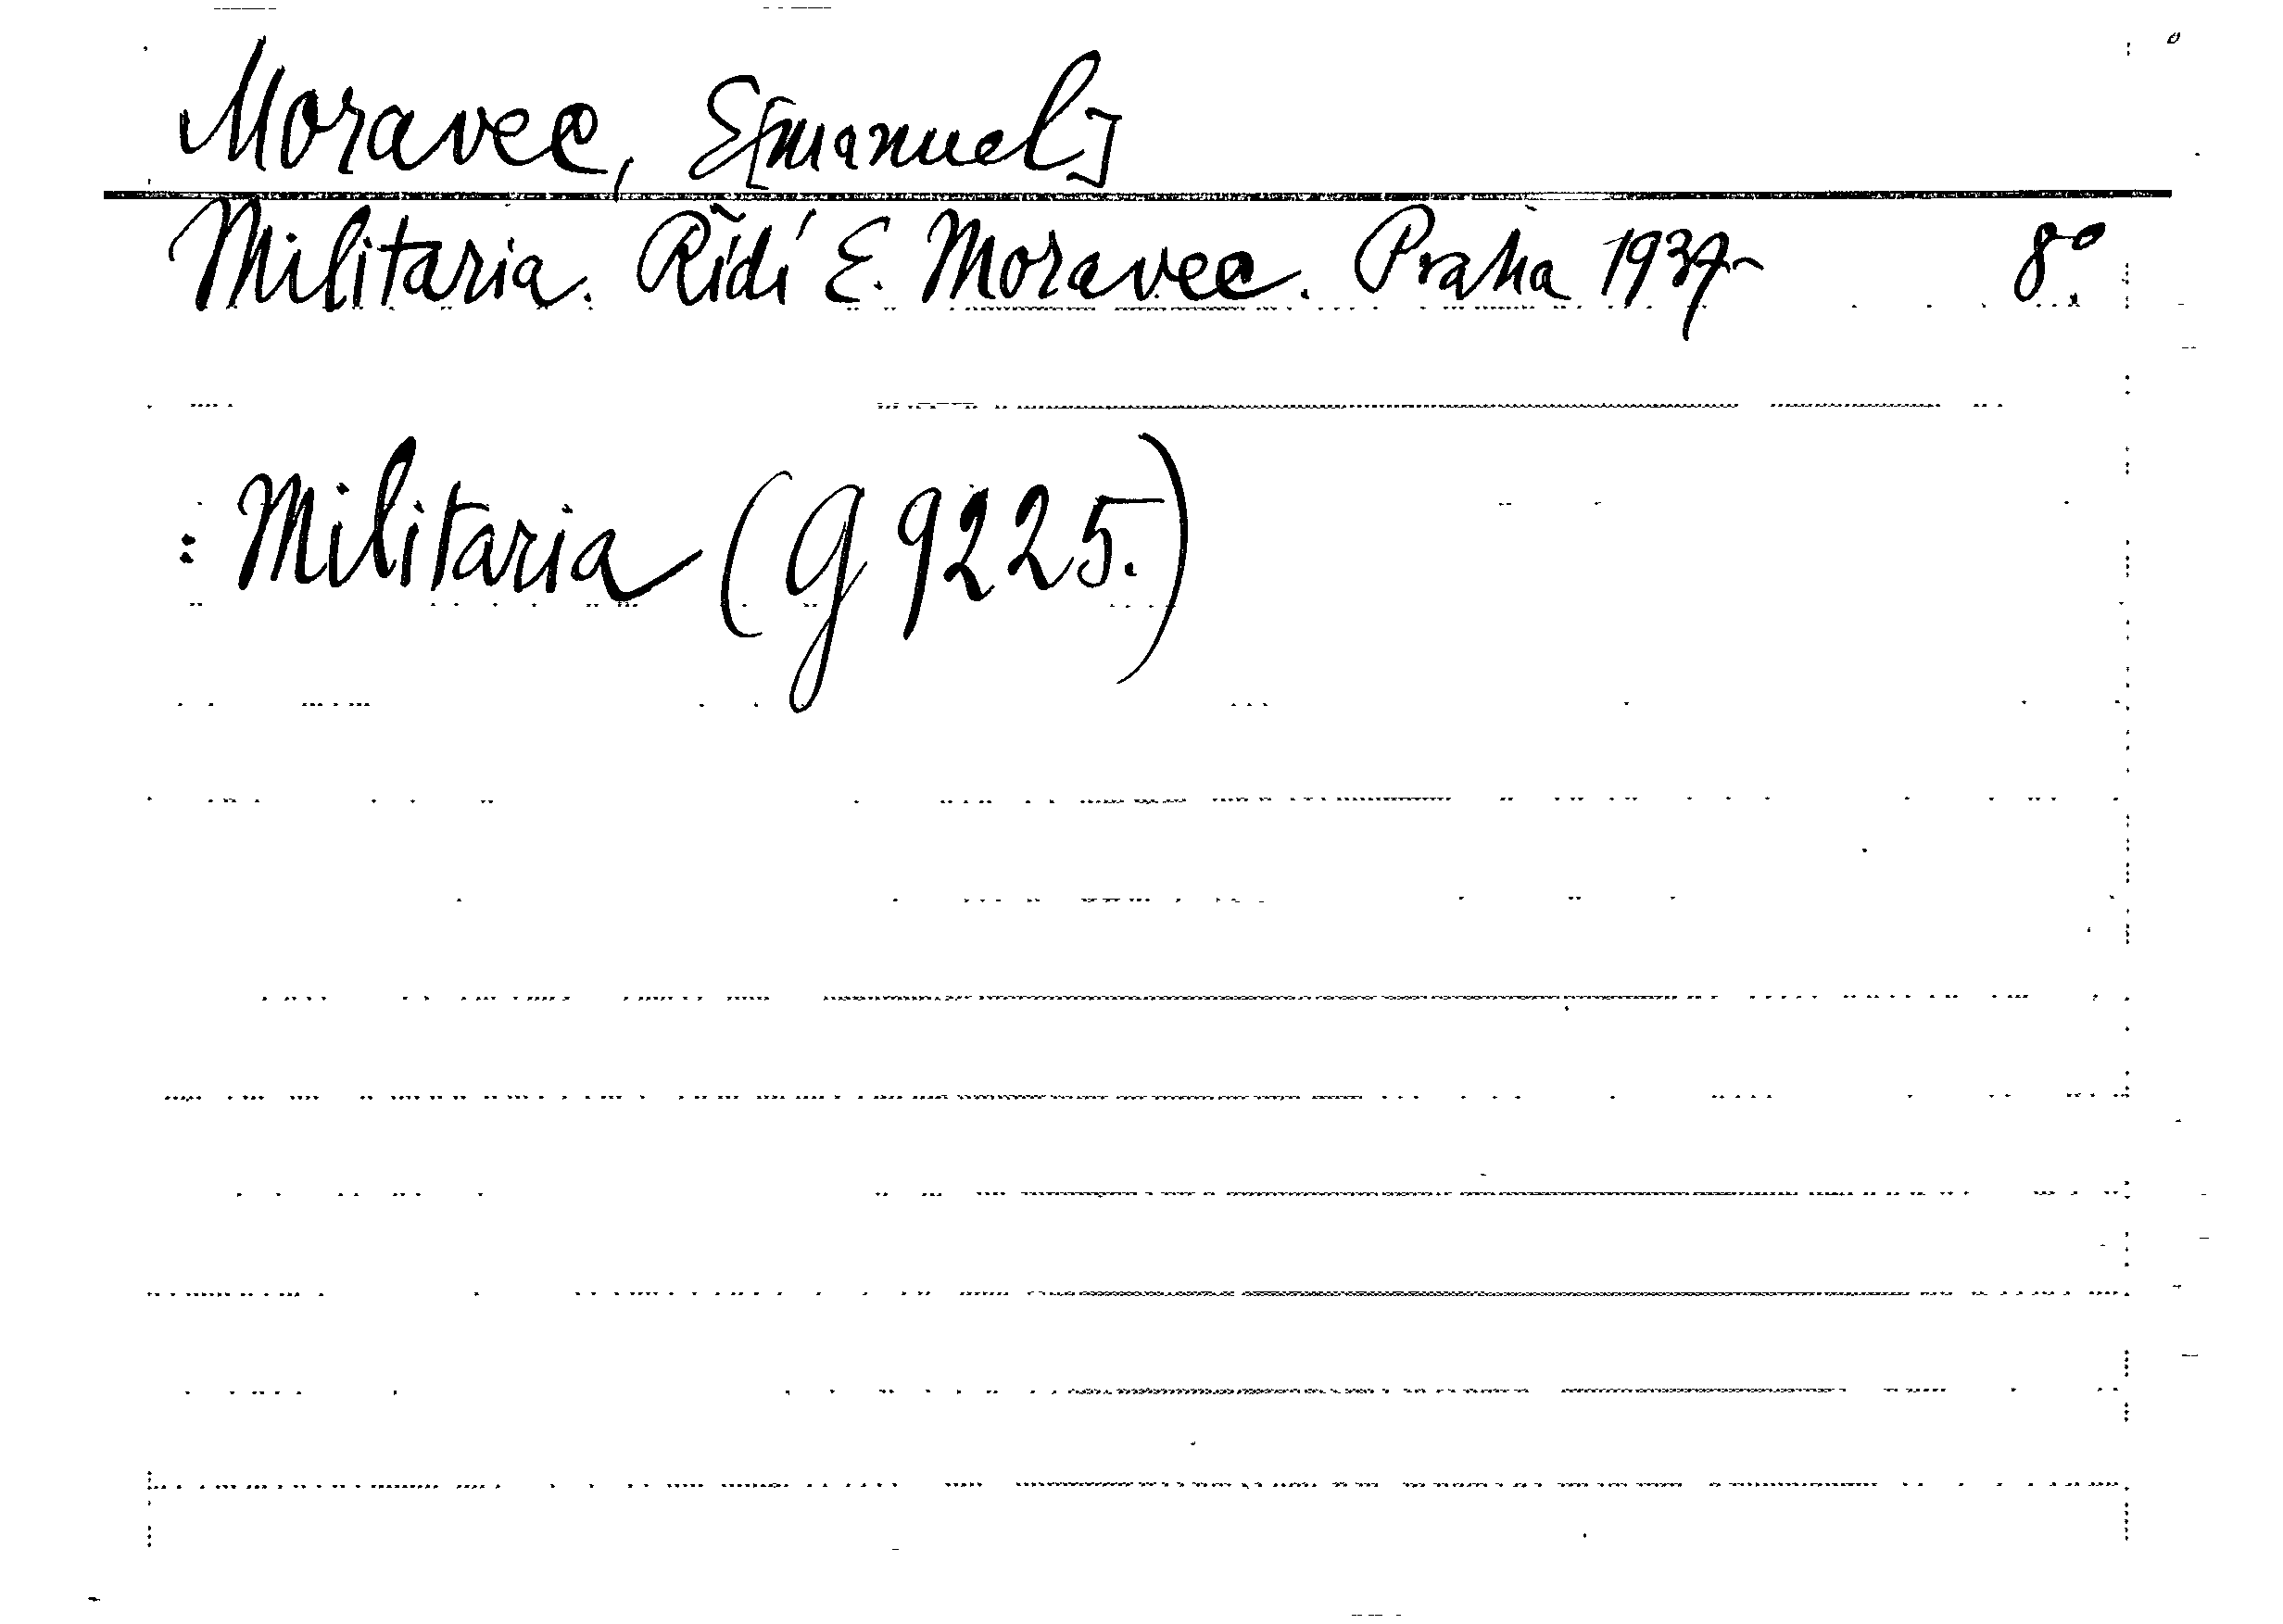 Moravec, E[manuel]
Militaria. Řídí E. Moravec. Praha 1937- 8°.
: Militaria (g 9225.)